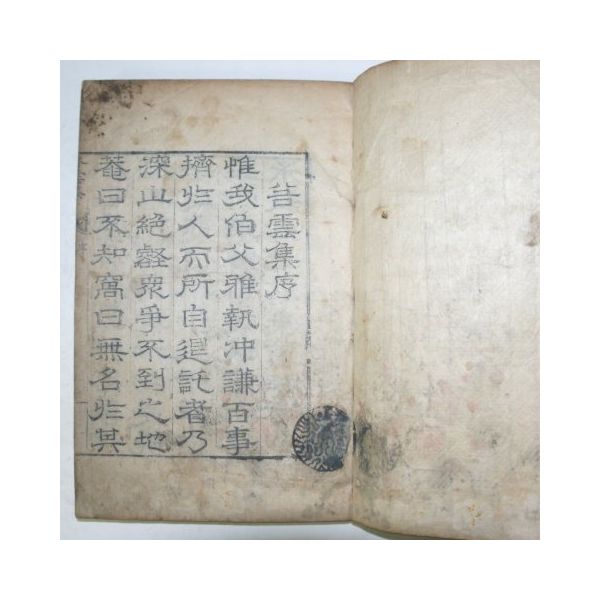 谷雲集序
惟我伯父雅執冲謙百事
擠於人而所自退託者乃
深山絕壑衆爭不到之地
菴曰不知窩曰無名於其